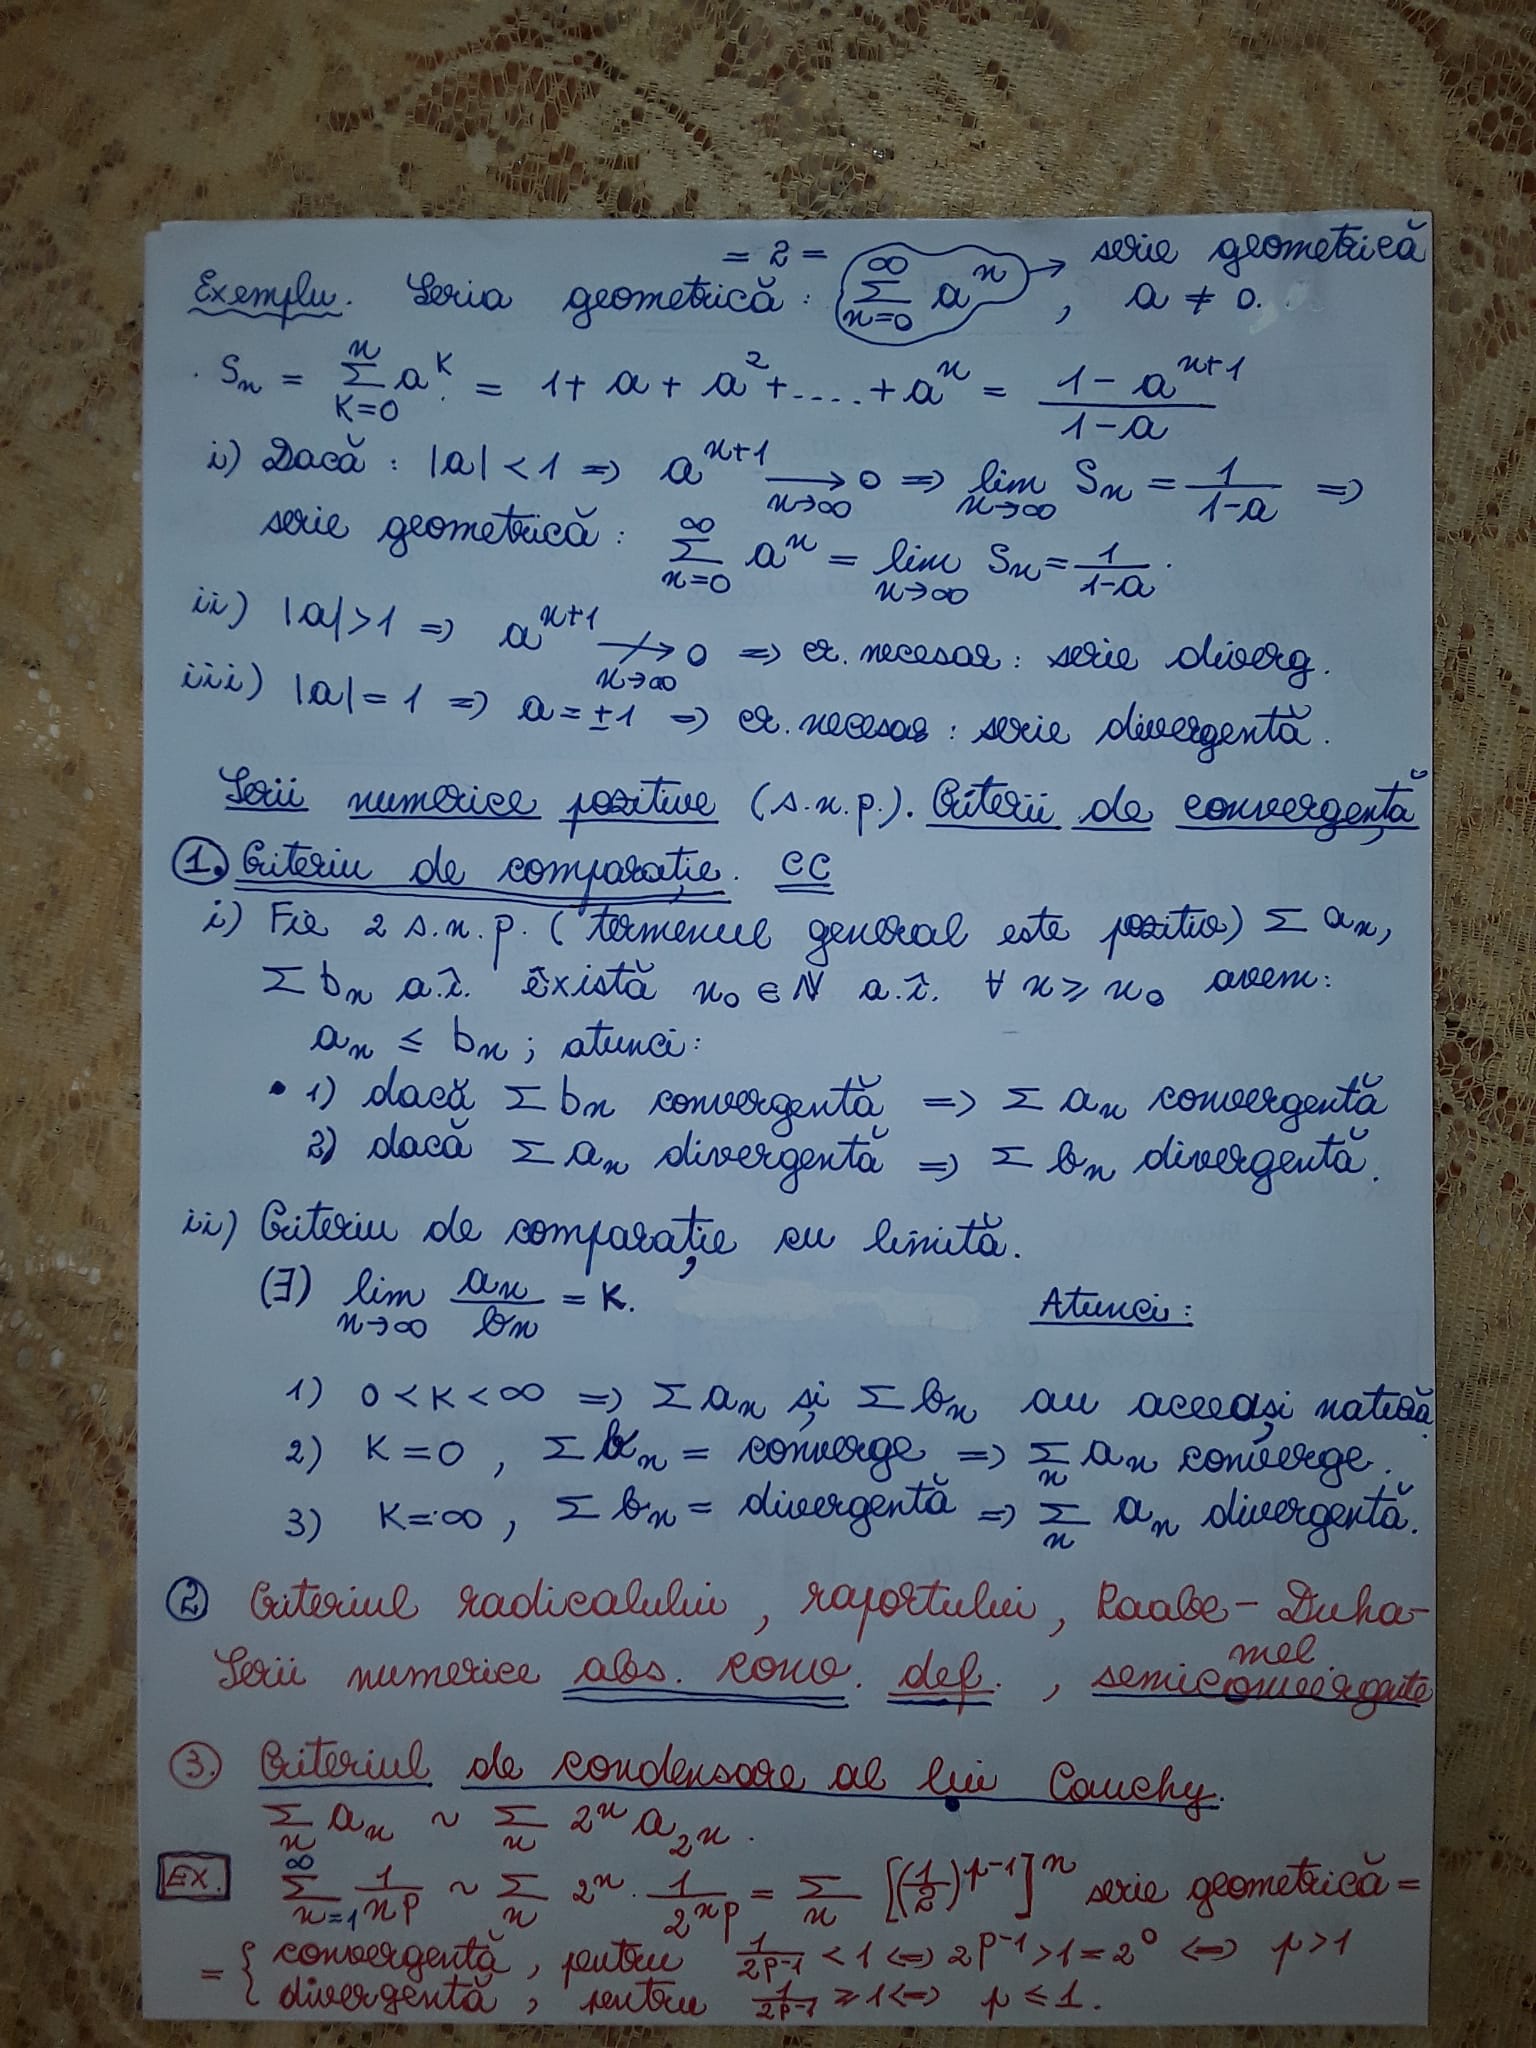 = 2 =
Exemplu. Seria geometrică : ∑_{n=0}^{∞} a^n → serie geometrică , a ≠ 0.
. S_n = ∑_{K=0}^{n} a^K = 1 + a + a^2 + .... + a^n = (1 - a^{n+1})/(1 - a)
i) Dacă : |a| < 1 => a^{n+1} →_{n→∞} 0 => lim_{n→∞} S_n = 1/(1-a) =>
serie geometrică : ∑_{n=0}^{∞} a^n = lim_{n→∞} S_n = 1/(1-a) .
ii) |a| > 1 => a^{n+1} ↛_{n→∞} 0 => cr. necesar : serie diverg.
iii) |a| = 1 => a = ±1 => cr. necesar : serie divergentă.
Serii numerice pozitive (s.n.p.). Criterii de convergență
1. Criteriu de comparație. CC
i) Fie 2 s.n.p. (termenul general este pozitiv) ∑ a_n,
∑ b_n a.î. există n_0 ∈ N a.î. ∀ n ≥ n_0 avem:
a_n ≤ b_n ; atunci:
• 1) dacă ∑ b_n convergentă => ∑ a_n convergentă
2) dacă ∑ a_n divergentă => ∑ b_n divergentă.
ii) Criteriu de comparație cu limită.
(∃) lim_{n→∞} a_n/b_n = K. Atunci :
1) 0 < K < ∞ => ∑ a_n și ∑ b_n au aceeași natură
2) K = 0 , ∑ b_n = converge => ∑_n a_n converge.
3) K = ∞ , ∑ b_n = divergentă => ∑_n a_n divergentă.
2 Criteriul radicalului , raportului , Raabe - Duha-
mel.
Serii numerice abs. conv. def. , semiconvergente
3. Criteriul de condensare al lui Cauchy.
∑_n a_n ~ ∑_n 2^n a_{2^n} .
EX. ∑_{n=1}^{∞} 1/n^p ~ ∑_n 2^n · 1/2^{np} = ∑_n [(1/2)^{p-1}]^n serie geometrică =
= { convergentă , pentru 1/2^{p-1} < 1 <=> 2^{p-1} > 1 = 2^0 <=> p > 1
divergentă , pentru 1/2^{p-1} ≥ 1 <=> p ≤ 1.